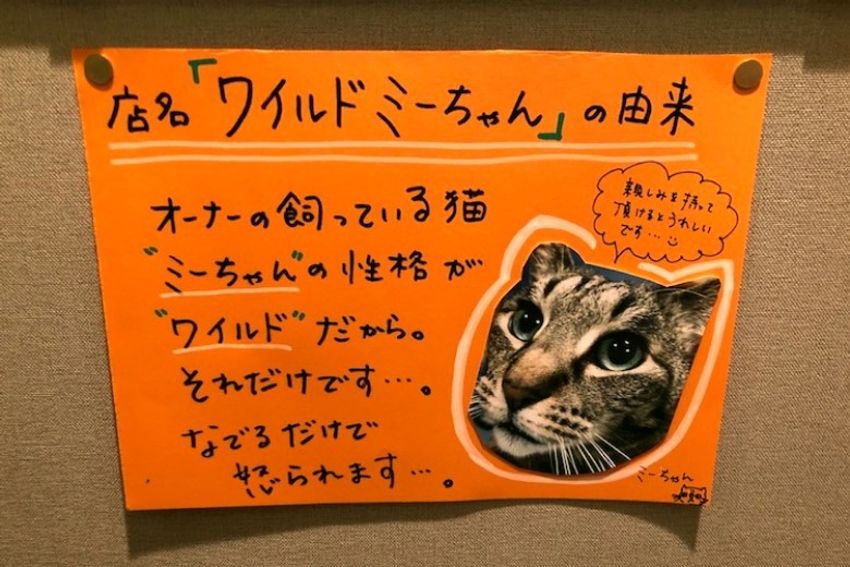 店名「ワイルドミーちゃん」の由来
オーナーの飼っている猫
"ミーちゃん"の性格が
"ワイルド"だから。
それだけです…。
なでるだけで
怒られます…。
親しみを持って
頂けるとうれしい
です…
ミーちゃん